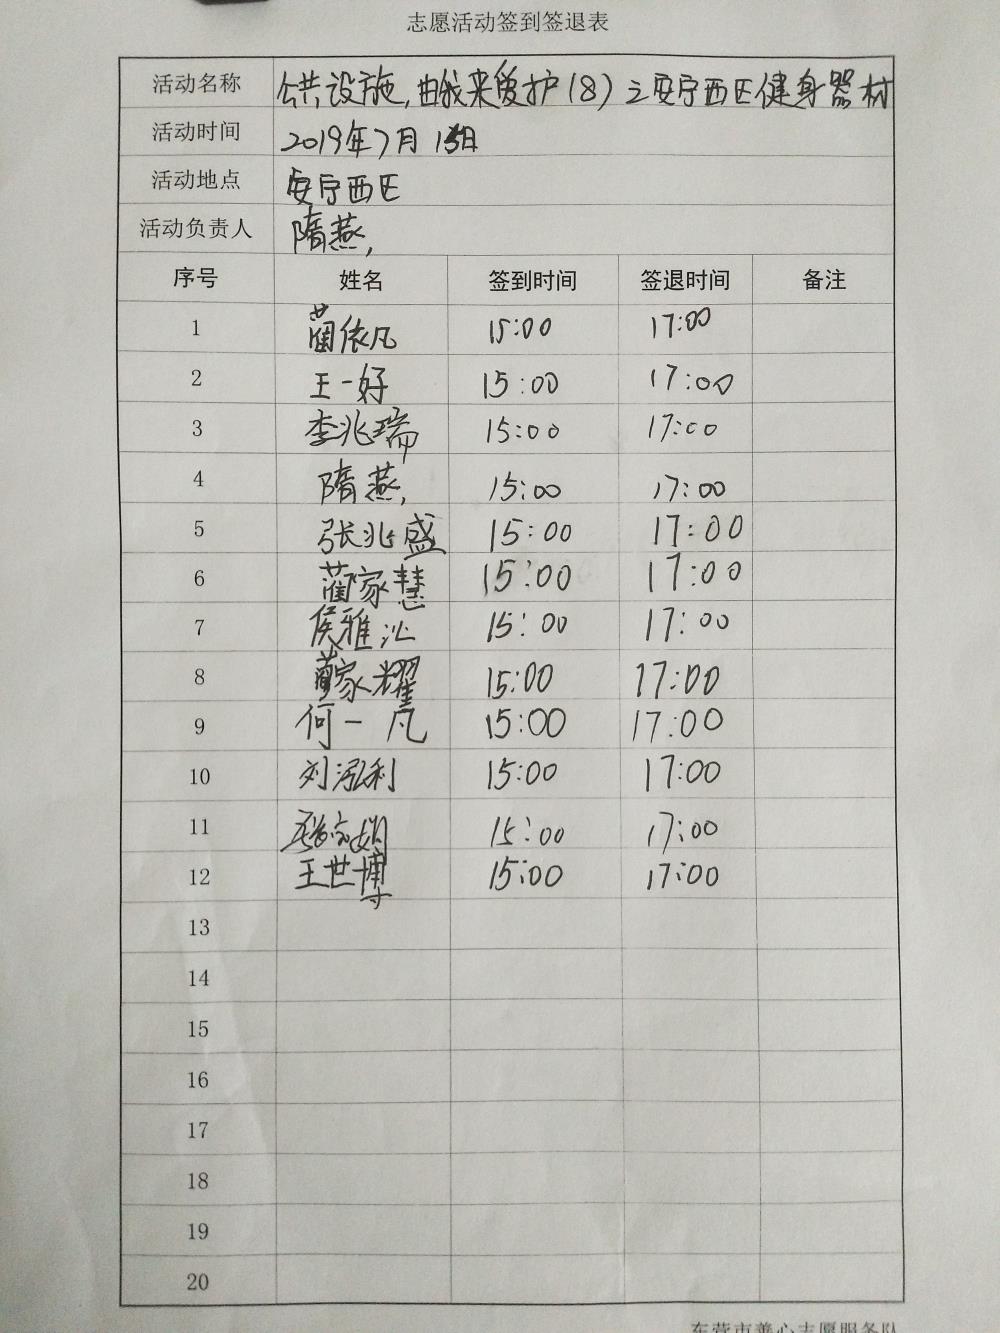 志愿活动签到签退表
活动名称 公共设施,由我来爱护(8)之安宁西区健身器材
活动时间 2019年7月15日
活动地点 安宁西区
活动负责人 隋燕,
序号 姓名 签到时间 签退时间 备注
1 蔺依凡 15:00 17:00
2 王一好 15:00 17:00
3 李兆瑞 15:00 17:00
4 隋燕, 15:00 17:00
5 张兆盛 15:00 17:00
6 蔺家慧 15:00 17:00
7 侯雅沁 15:00 17:00
8 蔺家耀 15:00 17:00
9 何一凡 15:00 17:00
10 刘泓利 15:00 17:00
11 15:00 17:00
12 王世博 15:00 17:00
13
14
15
16
17
18
19
20
东营市善心志愿服务队